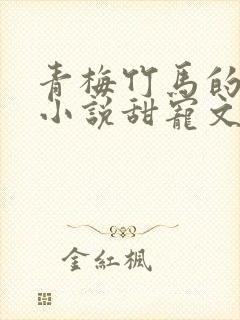 青梅竹馬的
小說甜寵文
金紅楓